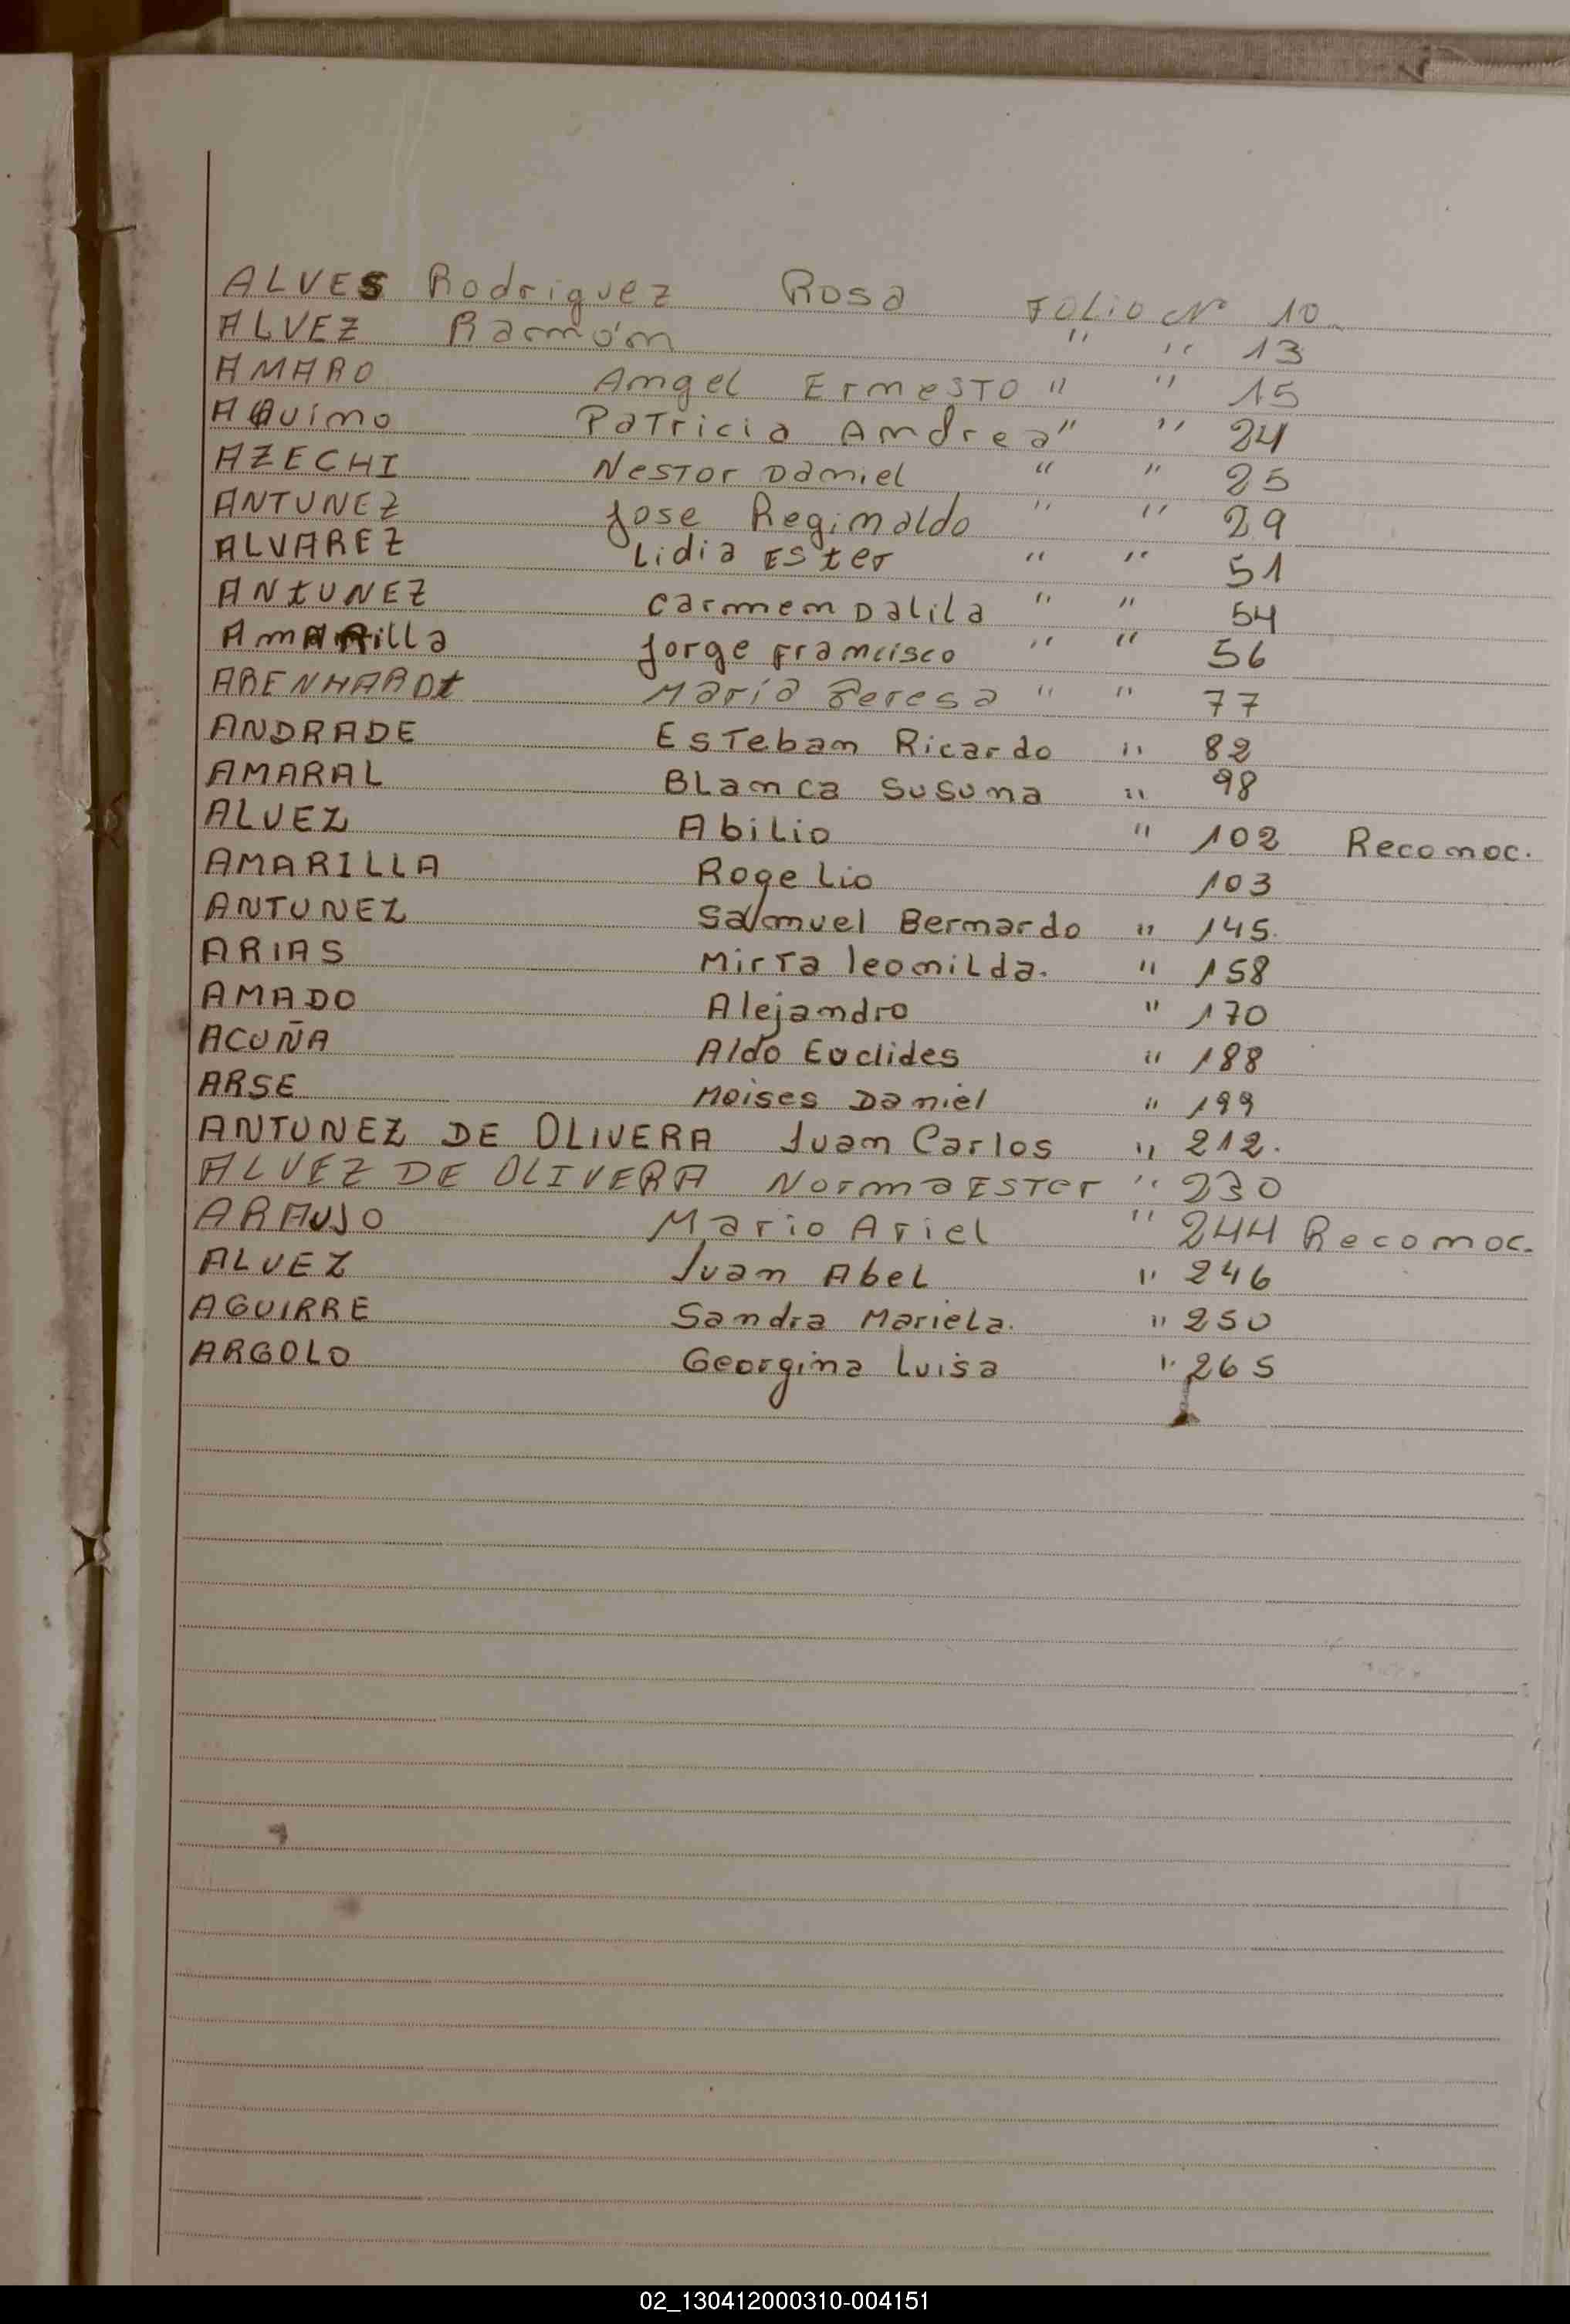 ALVES Rodriguez Rosa Folio Nº 10
ALVEZ Ramón " " 13
AMARO Angel Ernesto " " 15
AQuino Patricia Andrea " " 24
AZECHI Nestor Daniel " " 25
ANTUNEZ Jose Reginaldo " " 29
ALVAREZ Lidia Ester " " 51
ANtUNEZ Carmen Dalila " " 54
AmARilla Jorge Francisco " " 56
ARENHARDt María Teresa " " 77
ANDRADE Esteban Ricardo " 82
AMARAL Blanca Susuna " 98
ALVEZ Abilio " 102 Reconoc.
AMARILLA Rogelio 103
ANTUNEZ Samuel Bernardo " 145.
ARIAS Mirta leonilda. " 158
AMADO Alejandro " 170
ACUÑA Aldo Euclides " 188
ARSE Moises Daniel " 199
ANTUNEZ DE OLIVERA Juan Carlos " 212.
ALVEZ DE OLIVERA Norma Ester " 230
ARAUJO Mario Ariel " 244 Reconoc.
ALVEZ Juan Abel " 246
AGUIRRE Sandra Mariela. " 250
ARGOLO Georgina Luisa " 265
02_130412000310-004151